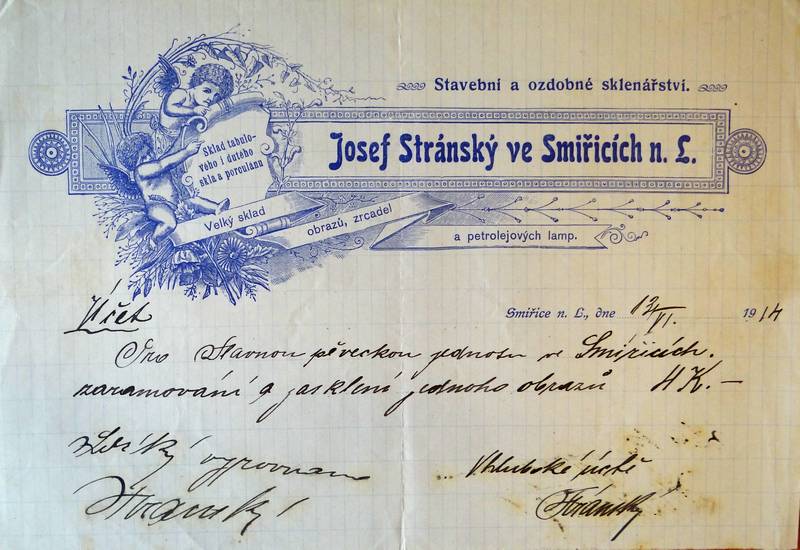 Stavební a ozdobné sklenářství.
Sklad tabulo-
vého i dutého
skla a porculánu
Josef Stránský ve Smiřicích n. L.
Velký sklad
obrazů, zrcadel
a petrolejových lamp.
Účet
Smiřice n. L., dne 13/VI. 1914
Pro slavnou pěveckou jednotu ve Smiřicích.
zaramování a zasklení jednoho obrazů 4 K.–
S díky vyrovnáno
Stránský
V hluboké úctě
Stránský